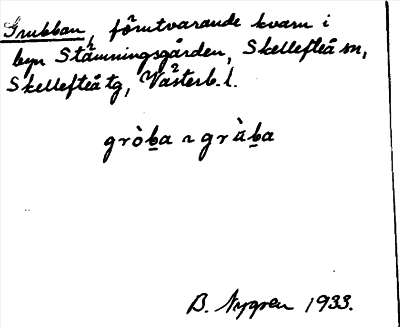 Grubban, förutvarande kvarn i
byn Stämningsgården, Skellefteå sn,
Skellefteå tg, Västerb. l.
gròb̲a ~ grùb̲a
B. Nygren 1933.